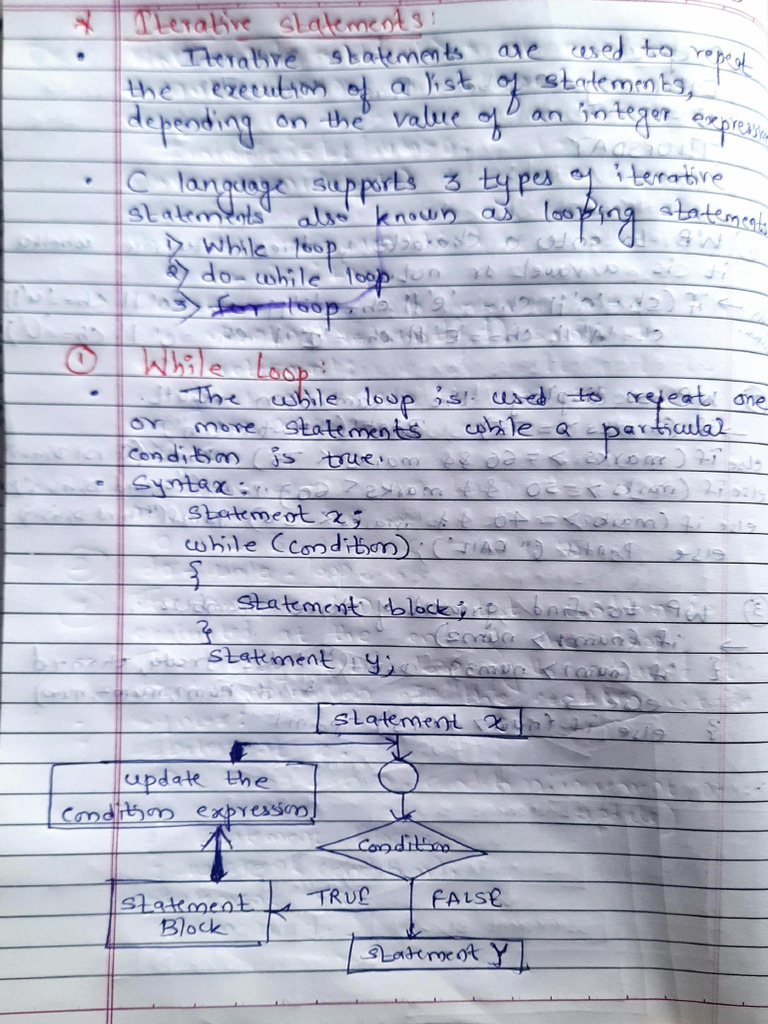 * Iterative statements:
• Iterative statements are used to repeat
the execution of a list of statements,
depending on the value of an integer expression
• C language supports 3 types of iterative
statements also known as looping statements
1> While loop
2> do-while loop
3> for loop.
① While Loop:
• The while loop is used to repeat one
or more statements while a particular
condition is true.
• Syntax:
statement x;
while (condition)
{
statement block;
}
statement y;
statement x
update the
condition expression
condition
TRUE
FALSE
statement
Block
statement y